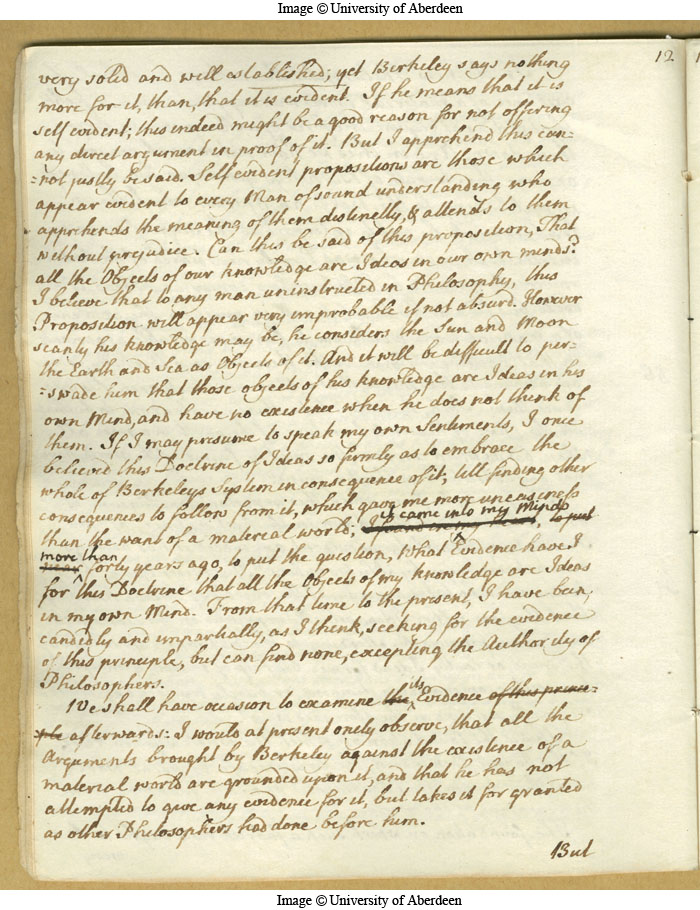 Image © University of Aberdeen
12
very solid and well established; yet Berkeley says nothing
more for it, than, that it is evident. If he means that it is
self evident; this indeed might be a good reason for not offering
any direct argument in proof of it. But I apprehend this can=
=not justly be said. Self evident propositions are those which
appear evident to every Man of sound understanding who
apprehends the meaning of them distinctly, & attends to them
without prejudice. Can this be said of this proposition, That
all the Objects of our knowledge are Ideas in our own minds?
I believe that to any man uninstructed in Philosophy, this
Proposition will appear very improbable if not absurd. However
scanty his knowledge may be, he considers the Sun and Moon
the Earth and Sea as Objects of it. And it will be difficult to per=
=swade him that those objects of his knowledge are Ideas in his
own Mind, and have no existence when he does not think of
them. If I may presume to speak my own Sentiments, I once
believed this Doctrine of Ideas so firmly as to embrace the
whole of Berkeleys System in consequence of it; till finding other
consequences to follow from it, which gave me more uneasiness
it came into my Mind
than the want of a material world; to put
more than
near forty years ago, to put the question, What Evidence have I
for this Doctrine that all the Objects of my knowledge are Ideas
in my own Mind. From that time to the present, I have been,
candidly and impartially, as I think, seeking for the evidence
of this principle, but can find none, excepting the Authority of
Philosophers.
We shall have occasion to examine the its Evidence of this princi=
=ple afterwards: I would at present onely observe, that all the
Arguments brought by Berkeley against the existence of a
material world are grounded upon it, and that he has not
attempted to give any evidence for it, but takes it for granted
as other Philosophers had done before him.
But
Image © University of Aberdeen